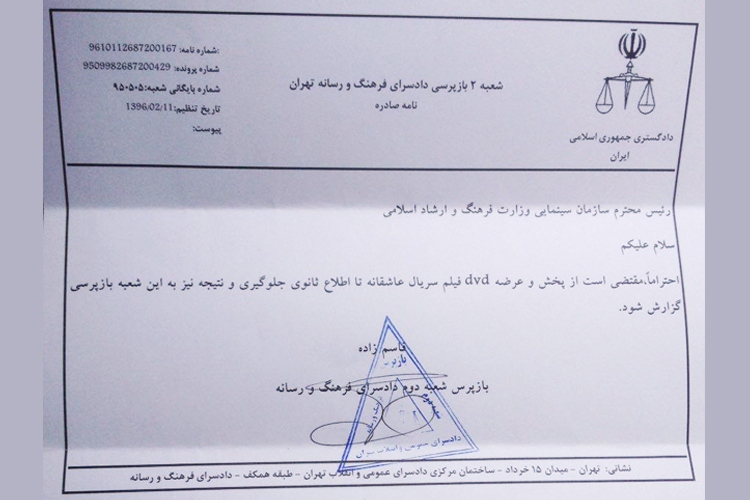 دادگستری جمهوری اسلامی
ایران
شعبه ۲ بازپرسی دادسرای فرهنگ و رسانه تهران
نامه صادره
شماره نامه: 9610112687200167
شماره پرونده: 9509982687200429
شماره بایگانی شعبه: ۹۵۰۵۰۵
تاریخ تنظیم: 1396/02/11
پیوست:
رئیس محترم سازمان سینمایی وزارت فرهنگ و ارشاد اسلامی
سلام علیکم
احتراماً،مقتضی است از پخش و عرضه dvd فیلم سریال عاشقانه تا اطلاع ثانوی جلوگیری و نتیجه نیز به این شعبه بازپرسی
گزارش شود.
قاسم زاده
بازپرس
بازپرس شعبه دوم دادسرای فرهنگ و رسانه
شعبه دوم
فرهنگ و رسانه
دادسرای عمومی و انقلاب تهران
نشانی: تهران - میدان ۱۵ خرداد - ساختمان مرکزی دادسرای عمومی و انقلاب تهران - طبقه همکف - دادسرای فرهنگ و رسانه